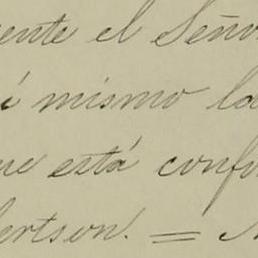 ente el Seño
í mismo la
ue está conf
bertson. =